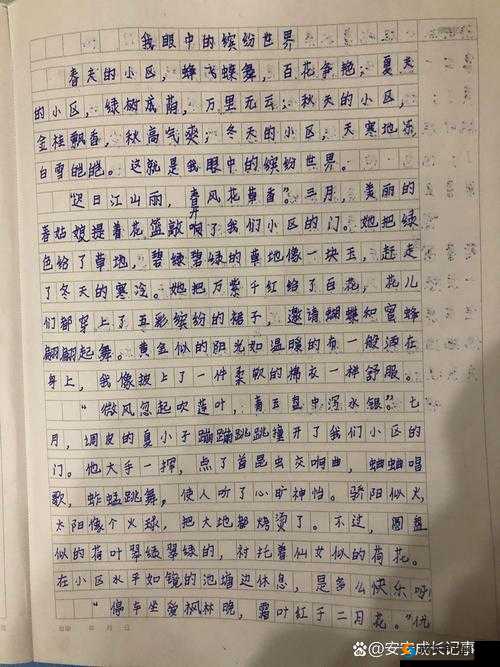 我眼中的缤纷世界
春天的小区，蜂飞蝶舞，百花争艳；夏天
的小区，绿树成荫，万里无云；秋天的小区，
金桂飘香，秋高气爽；冬天的小区，天寒地冻
白雪皑皑。这就是我眼中的缤纷世界。
“迟日江山丽，春风花草香”。三月，美丽的
春姑娘提着花篮敲开了我们小区的门。她把绿
色给了草地，碧绿碧绿的草地像一块玉，赶走
了冬天的寒冷。她把万紫千红给了百花，花儿
们都穿上了五彩缤纷的裙子，邀请蝴蝶和蜜蜂
翩翩起舞。黄金似的阳光如温暖的布一般洒在
身上，我像披上了一件柔软的棉衣一样舒服。
“微风忽起吹莲叶，青玉盘中泻水银”。七
月，调皮的夏小子蹦蹦跳跳撞开了我们小区的
门。他大手一挥，点了首昆虫交响曲，蝈蝈唱
歌，蚱蜢跳舞，使人听了心旷神怡。骄阳似火，
太阳像个火球，把大地都烧烫了。不过，圆盘
似的荷叶翠绿翠绿的，衬托着仙女似的荷花。
在小区水平如镜的池塘边休息，是多么快乐呀
“停车坐爱枫林晚，霜叶红于二月花。”优
年 月 日
@安安成长记事